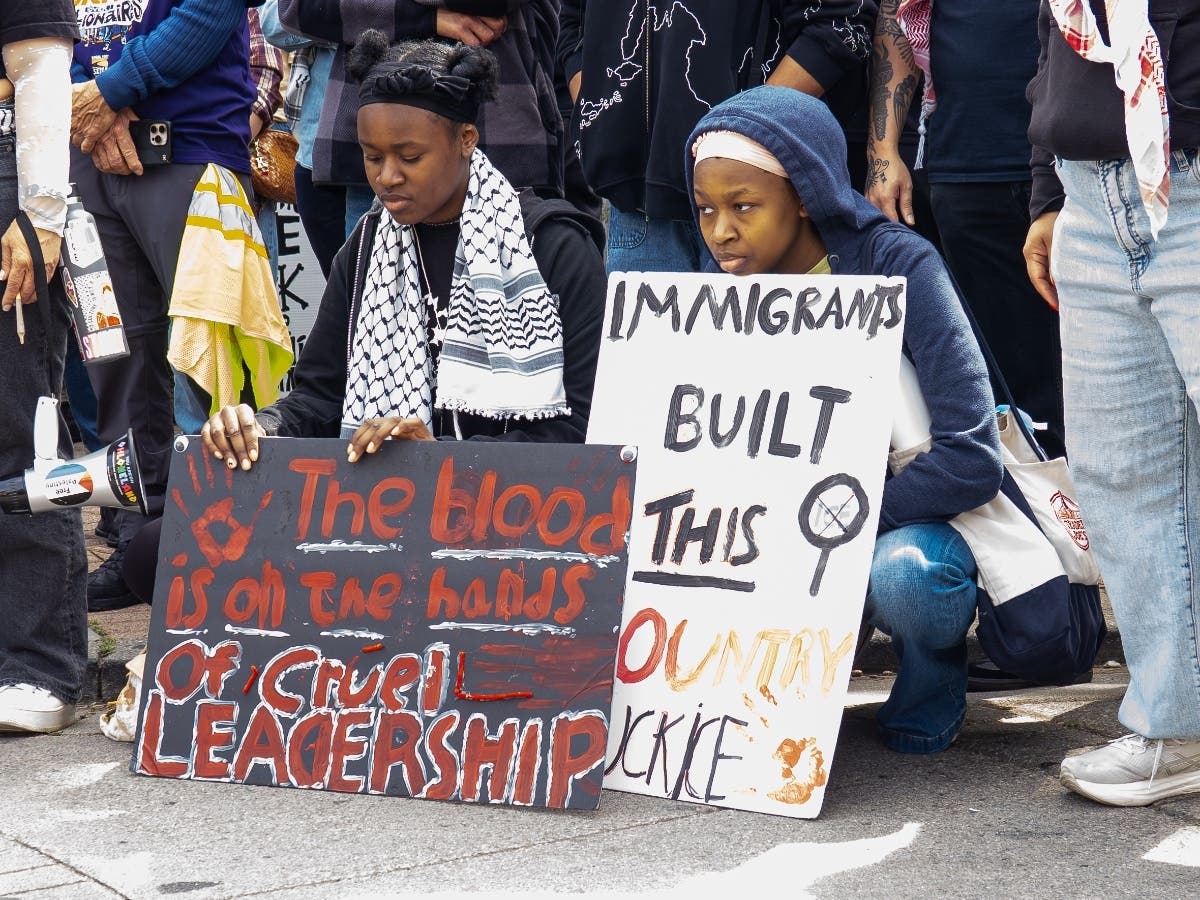 The blood
is on the hands
Of Cruel
LEADERSHIP
IMMIGRANTS
BUILT
THIS
OUNTRY
UCK ICE
Free
Palestine